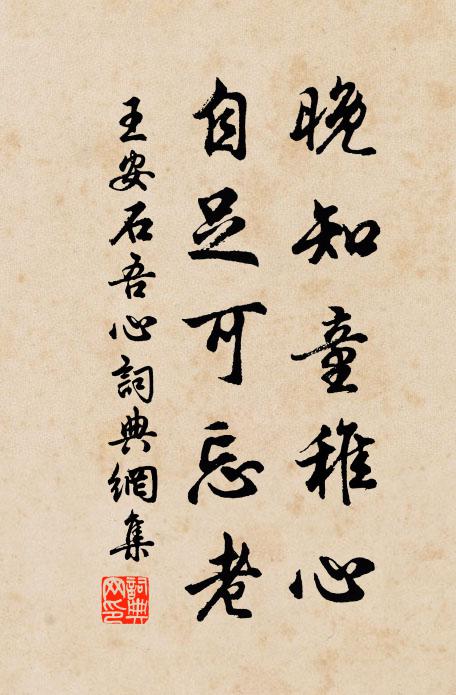 晚知童稚心
自足可忘老
王安石吾心詞典網集
詞典網印